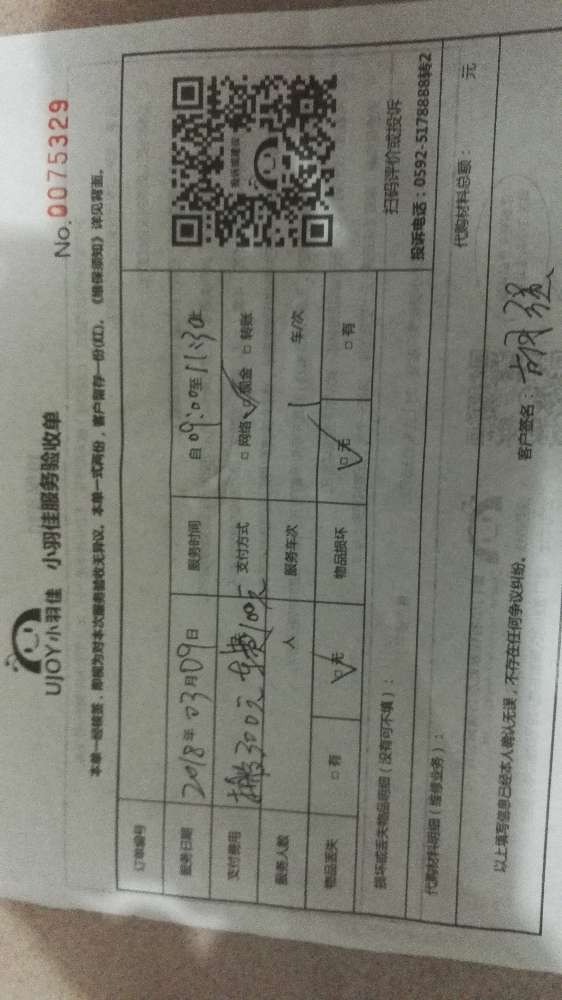 UJOY小羽佳 小羽佳服务验收单
No.0075329
本单一经核签，即视为对本次服务验收无异议。本单一式两份，客户留存一份(红)。《维保须知》详见背面。
订单编号
服务日期 2018年03月09日 服务时间 自09:00至11:30止
支付费用 搬300元 车费100元 支付方式 □网络 ☑现金 □转账
服务人数 人 服务车次 1 车/次
物品丢失 □有 ☑无 物品损坏 ☑无 □有
扫码评价或投诉
投诉电话：0592-5178888转2
损坏或丢失物品明细（没有可不填）：
代购材料明细（维修业务）： 代购材料总额： 元
以上填写信息已经本人确认无误，不存在任何争议纠纷。 客户签名：胡强